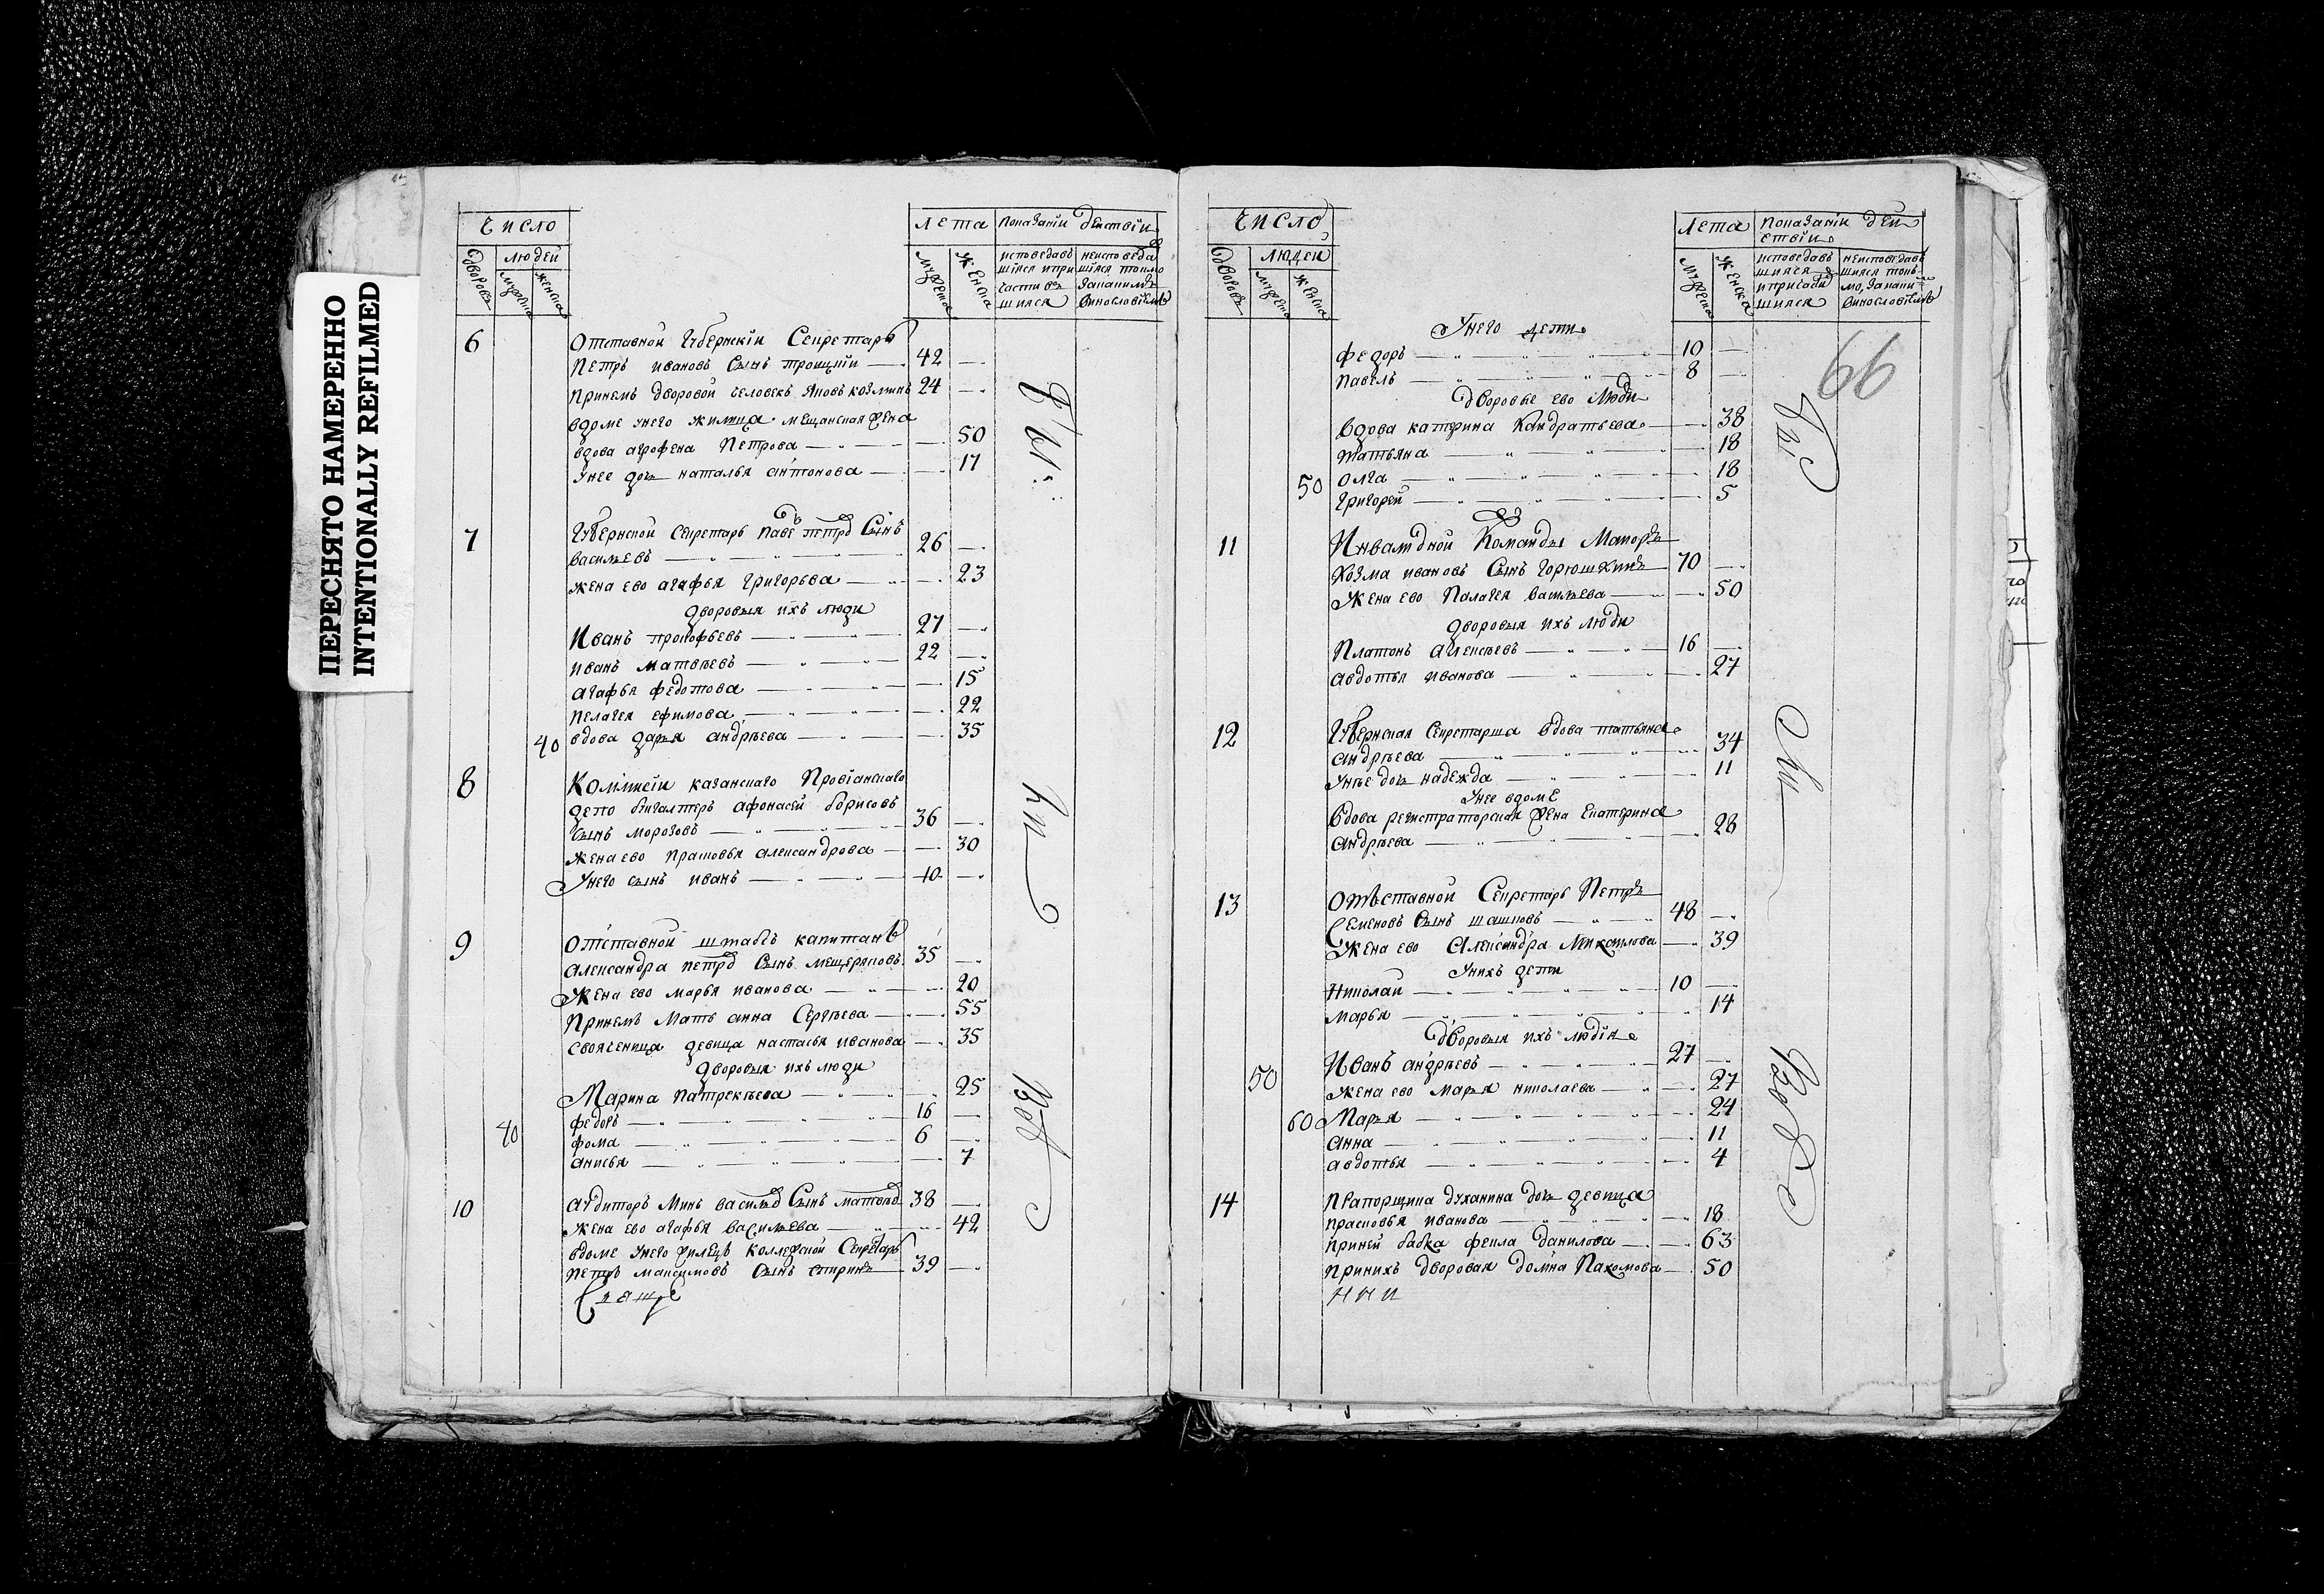 ПЕРЕСНЯТО НАМЕРЕННО
INTENTIONALLY REFILMED
число
дворовъ
людей
мужеска
женска
лета
мужеска
женска
показаніи действіи
исповедавшіяся и причастившияся
неисповедавшіяся
6
отставной губернскіи Секретарь
Петръ ивановъ Сынъ троицкіи 42
принемъ дворовой человекъ яковъ козминъ 24
вдоме унего жилица мещанская жена
вдова агрофена Петрова 50
унее дочь наталья антонова 17
7 губернской Секретарь паве петро Сынъ
васильевъ 26
жена ево агафья григорьва 23
дворовыя ихъ люди
Иванъ прокофьевъ 27
иванъ матвѣевъ 22
агафья федотова 15
пелагея ефимова 22
40 вдова дарья андрѣева 35
8 Комисіи казанскаго Провіанскаго
депо бухгалтеръ афонасей борисовъ
сынъ морозовъ 36
жена ево прасковья александрова 30
Унего сынъ иванъ 10
9 отставной штабсъ капитанъ
александра петро Сынъ мещеряковъ 35
Жена ево марья иванова 20
принемъ Мать анна Сергѣева 55
своячница девица настасья иванова 35
дворовыя ихъ люди
Марина патрекѣева 25
федоръ 16
40 фома 6
анисья 7
10 аудиторъ Минъ Сынъ 38
жена ево агафья васильева 42
вдоме унего жилецъ коллежской Секретарь
петръ максимовъ Сынъ 39
число
дворовъ
людеи
мужеска
женска
лета
мужеска
женска
показаніи деиствіи
исповедавшияся и причастившияся
неисповедавшияся
66
Унего дети
федоръ 10
павелъ 8
дворовые ево люди
вдова катерина Кондратьева 38
татьяна 18
50 олга 18
григорей 5
11 Инвалидной Команды Маиоръ
козма ивановъ Сынъ горюшкинъ 70
Жена ево Палагея васильева 50
дворовыя ихъ люди
Платонъ алексѣевъ 16
авдотья иванова 27
12 губернская Секретарша вдова татьяна
андрѣева 34
унѣе дочь надежда 11
унее вдоме
вдова регистраторская жена екатерина
андрѣева 28
13 отставной Секретарь Петръ
Семеновъ Сынъ шашковъ 48
Жена ево александра михаилова 39
унихъ дети
николаи 10
марья 14
дворовыя ихъ люди
Иванъ андрѣевъ 27
50 жена ево марья николаева 27
60 Марья 24
анна 11
авдотья 4
14 прапорщика духанина дочь девица
прасковья иванова 18
приней бабка фекла данилова 63
принихъ дворовая домна Пахомова 50